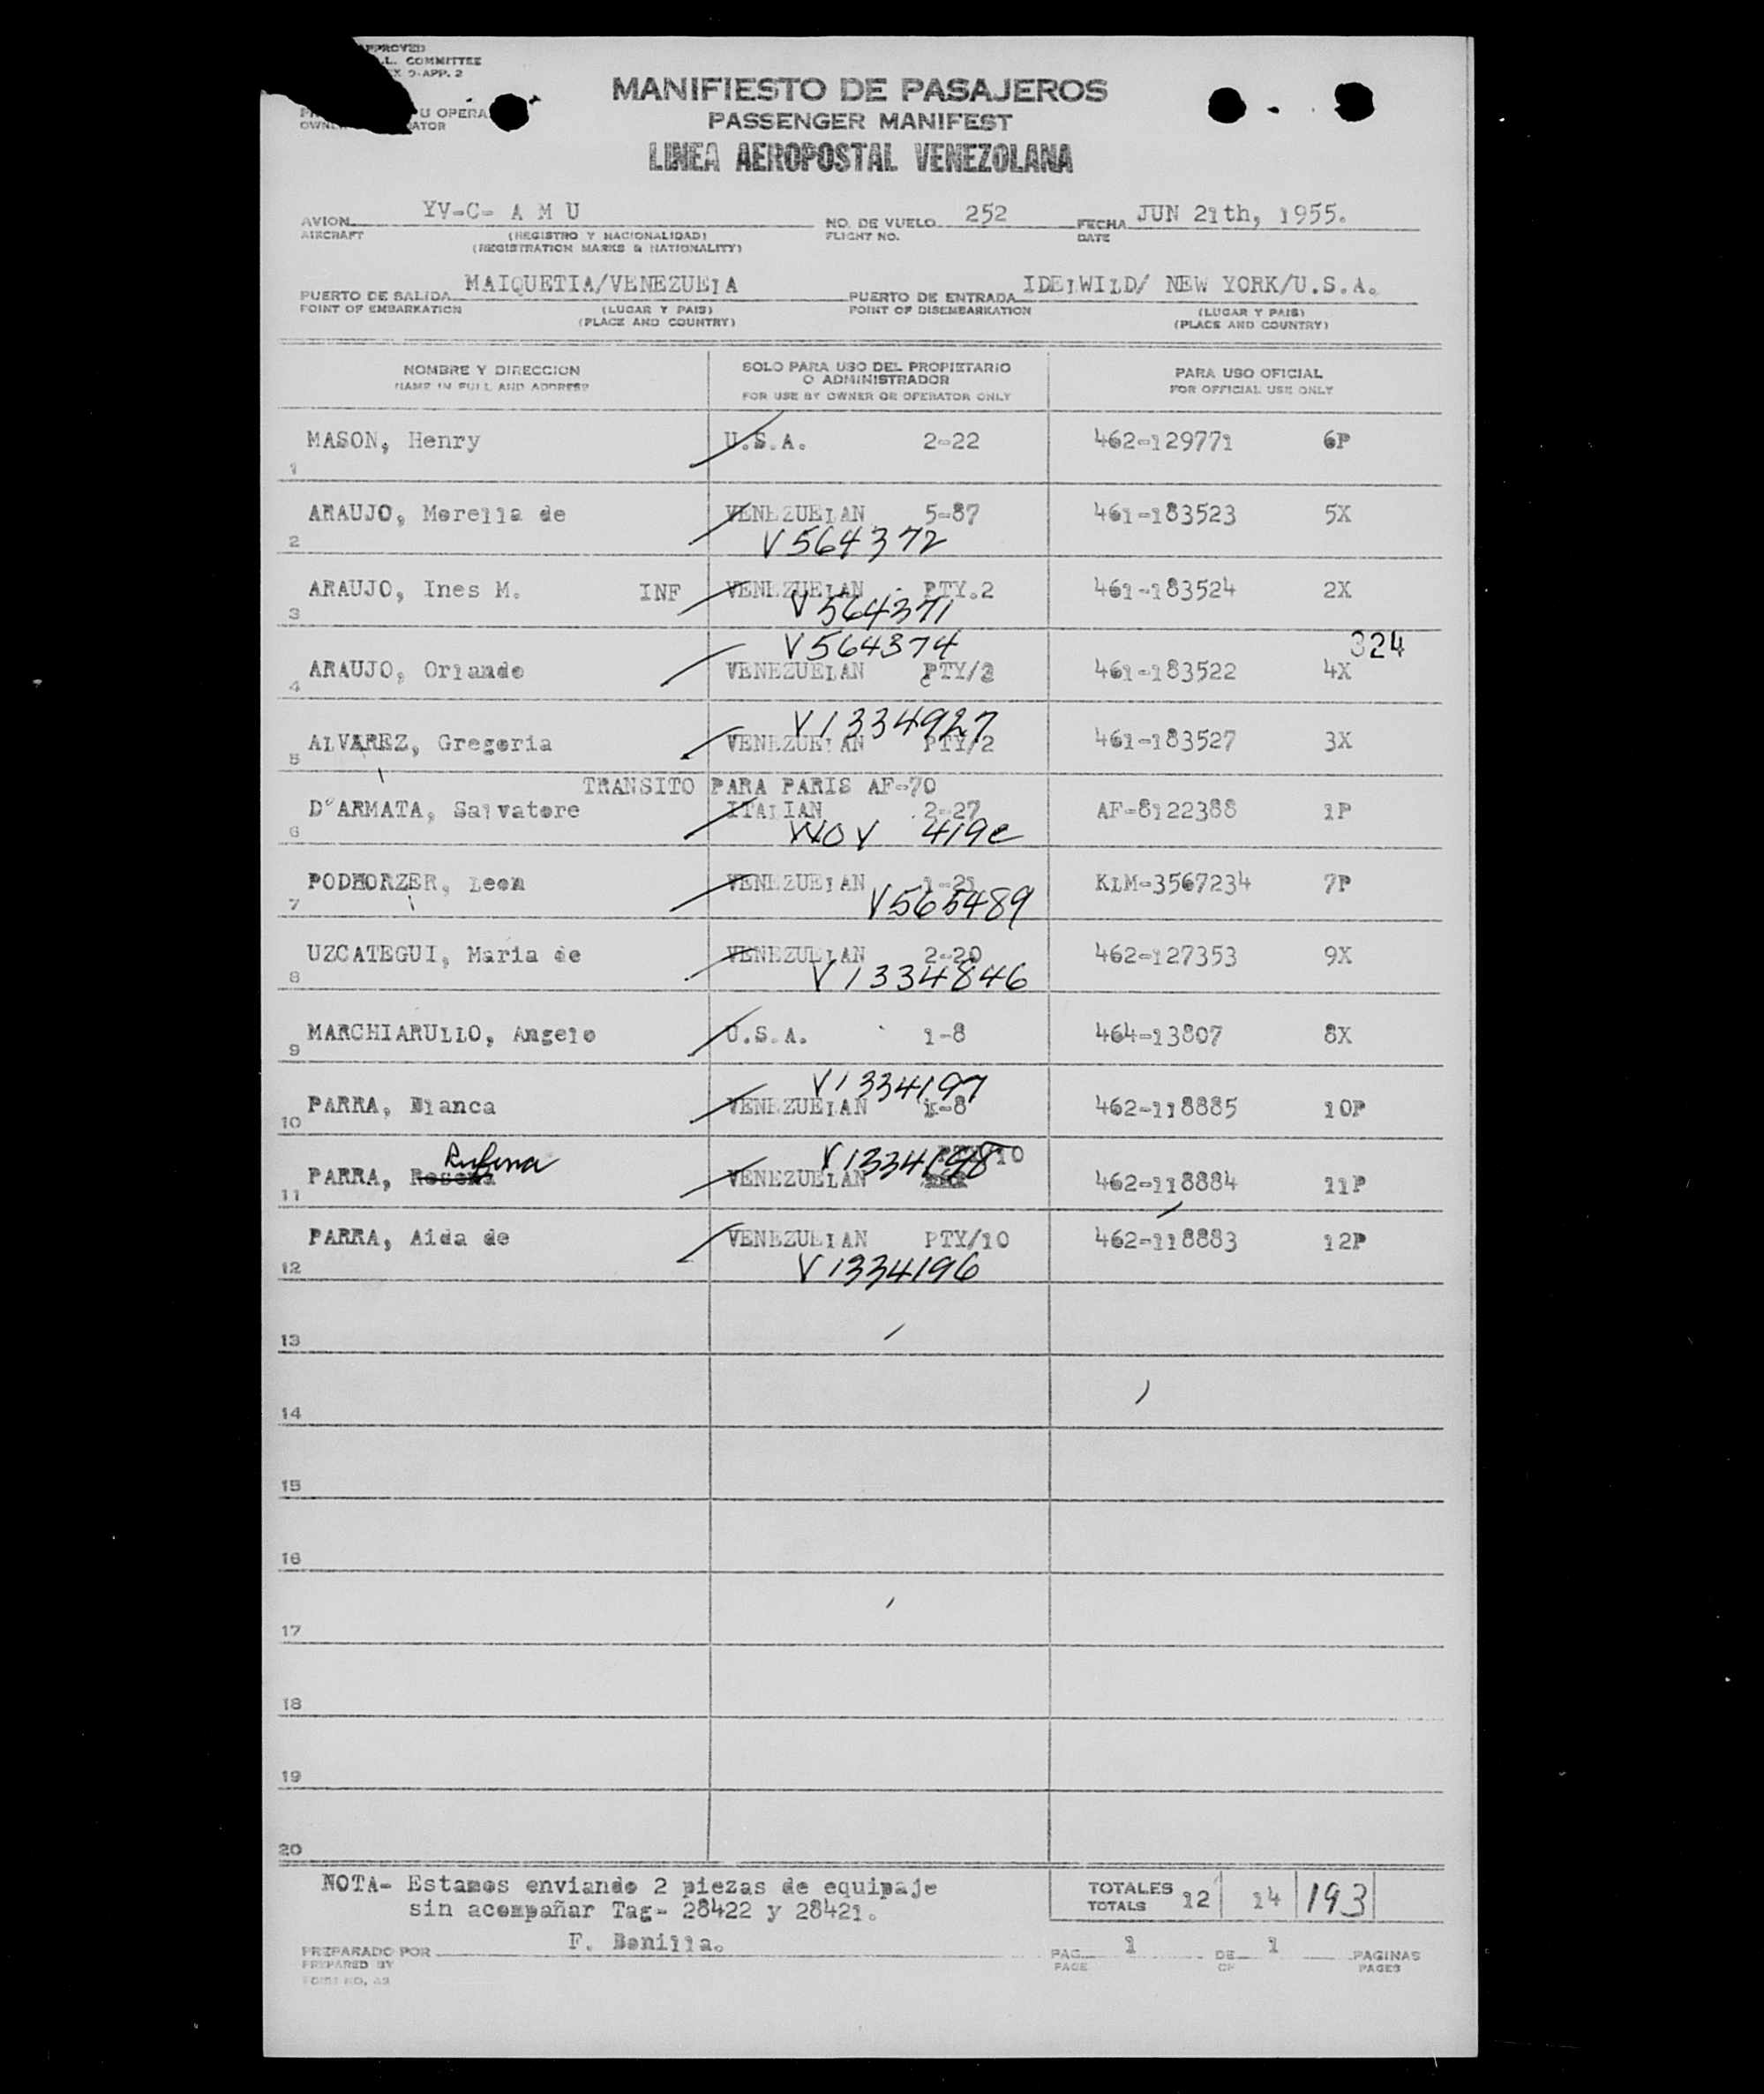 APPROVED
L. COMMITTEE
9-APP. 2
U OPERA
OWNE ATOR
MANIFIESTO DE PASAJEROS
PASSENGER MANIFEST
LINEA AEROPOSTAL VENEZOLANA
AVION YV-C- A M U NO. DE VUELO 252 FECHA JUN 21th, 1955.
AIRCRAFT (REGISTRO Y NACIONALIDAD) FLIGHT NO. DATE
(REGISTRATION MARKS & NATIONALITY)
PUERTO DE SALIDA MAIQUETIA/VENEZUELA PUERTO DE ENTRADA IDELWILD/ NEW YORK/U.S.A.
POINT OF EMBARKATION (LUGAR Y PAIS) POINT OF DISEMBARKATION (LUGAR Y PAIS)
(PLACE AND COUNTRY) (PLACE AND COUNTRY)
NOMBRE Y DIRECCION SOLO PARA USO DEL PROPIETARIO PARA USO OFICIAL
NAME IN FULL AND ADDRESS O ADMINISTRADOR FOR OFFICIAL USE ONLY
FOR USE BY OWNER OR OPERATOR ONLY
MASON, Henry U.S.A. 2-22 462-129771 6P
1
ARAUJO, Morella de VENEZUELAN 5-87 461-183523 5X
2 V564372
ARAUJO, Ines M. INF VENEZUELAN PTY.2 461-183524 2X
3 V564371
V564374 324
ARAUJO, Orlando VENEZUELAN PTY/2 461-183522 4X
4
V1334927
ALVAREZ, Gregoria VENEZUELAN PTY/2 461-183527 3X
5
TRANSITO PARA PARIS AF-70
D'ARMATA, Salvatore ITALIAN 2-27 AF-8122388 1P
6 WOV 419c
PODHORZER, Leon VENEZUELAN 1-21 KLM-3567234 7P
7 V565489
UZCATEGUI, Maria de VENEZUELAN 2-20 462-127353 9X
8 V1334846
MARCHIARULLO, Angelo U.S.A. 1-8 464-13807 8X
9
V1334197
PARRA, Blanca VENEZUELAN 1-8 462-118885 10P
10
Rufina V1334198 PTY/10
PARRA, VENEZUELAN 462-118884 11P
11
PARRA, Aida de VENEZUELAN PTY/10 462-118883 12P
12 V1334196
13
14
15
16
17
18
19
20
NOTA- Estamos enviando 2 piezas de equipaje TOTALES 12 14 193
sin acompañar Tag- 28422 y 28421. TOTALS
PREPARADO POR F. Bonilla. PAG. 1 DE 1 PAGINAS
PREPARED BY PAGE OF PAGES
FORM NO.